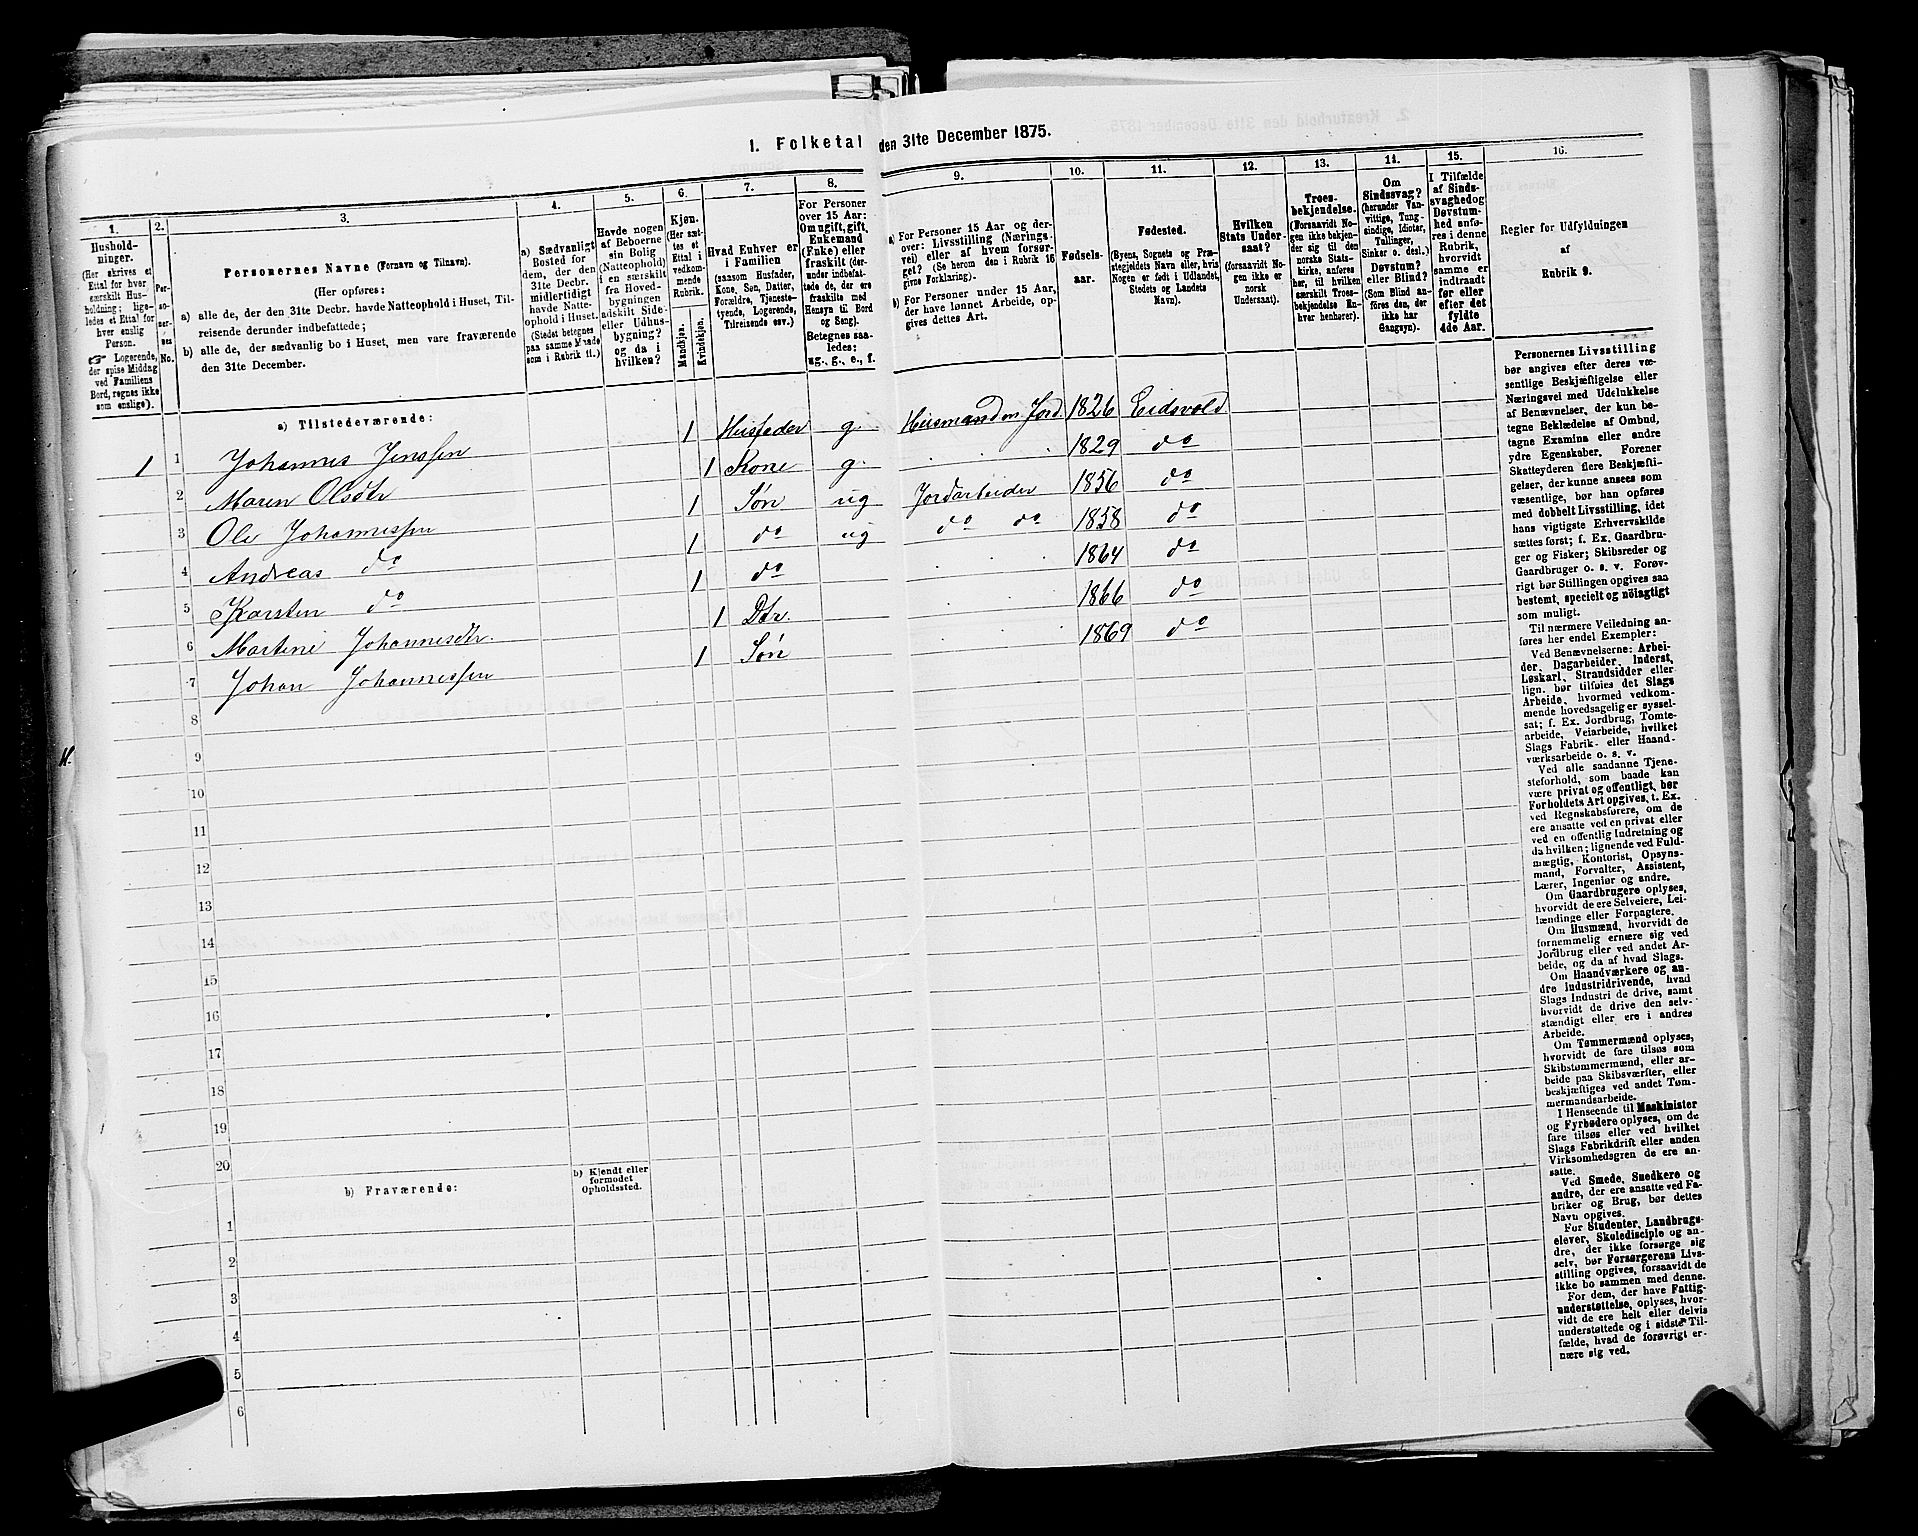 1. Folketal den 31te December 1875.
1. 2. 3. 4. 5. 6. 7. 8. 9. 10. 11. 12. 13. 14. 15. 16.
Hushold-
ninger.
(Her skrives et
Ettal for hver
særskilt Hus-
holdning; lige-
ledes et Ettal for
hver enslig
Person.
☞ Logerende,
der spise Middag
ved Familiens
Bord, regnes ikke
som enslige).
Per-
so-
ner-
nes
No.
Personernes Navne (Fornavn og Tilnavn).
(Her opføres:
a) alle de, der den 31te Decbr. havde Natteophold i Huset, Til-
reisende derunder indbefattede;
b) alle de, der sædvanlig bo i Huset, men vare fraværende
den 31te December.
a) Sædvanligt
Bosted for
dem, der den
31te Decbr.
midlertidigt
havde Natte-
ophold i Huset.
(Stedet betegnes
paa samme Maade
som i Rubrik 11.)
Havde nogen
af Beboerne
sin Bolig
(Natteophold)
i en særskilt
fra Hoved-
bygningen
adskilt Side-
eller Udhus-
bygning?
og da i
hvilken?
Kjøn.
(Her sæt-
tes et
Ettal i
vedkom-
mende
Rubrik.
Mandkjøn.
Kvindekjøn.
Hvad Enhver er
i Familien
(saasom Husfader,
Kone, Søn, Datter,
Forældre, Tjeneste-
tyende, Logerende,
Tilreisende osv.)
For Personer
over 15 Aar:
Om ugift, gift,
Enkemand
(Enke) eller
fraskilt (der-
under indbefat-
tede de, der ere
fraskilte med
Hensyn til Bord
og Seng).
Betegnes saa-
ledes:
ug., g., e., f.
a) For Personer 15 Aar og der-
over: Livsstilling (Nærings-
vei) eller af hvem forsør-
get? (Se herom den i Rubrik 16
givne Forklaring).
b) For Personer under 15 Aar,
der have lønnet Arbeide, op-
gives dettes Art.
Fødsels-
aar.
Fødested.
(Byens, Sognets og Præ-
stegjeldets Navn eller, hvis
Nogen er født i Udlandet,
Stedets og Landets
Navn).
Hvilken
Stats Under-
saat?
(forsaavidt No-
gen ikke er
norsk
Undersaat).
Troes-
bekjendelse.
(Forsaavidt No-
gen ikke bekjen-
der sig til den
norske Stats-
kirke, anføres
her, til hvilken
særskilt Troes-
bekjendelse En-
hver henhører).
Om
Sindssvag?
(herunder Van-
vittige, Tung-
sindige, Idioter,
Tullinger,
Sinker o. desl.).
Døvstum?
eller Blind?
(Som Blind an-
føres den, der
ikke har
Gangsyn).
I Tilfælde
af Sinds-
svaghed og
Døvstum-
hed anfø-
res i denne
Rubrik,
hvorvidt
samme er
indtraadt
før eller
efter det
fyldte
4de Aar.
Regler for Udfyldningen
af
Rubrik 9.
a) Tilstedeværende:
1 1 Johannes Jenssen 1 Husfader g. Husmand m. Jord 1826 Eidsvold
2 Maren Olsdtr 1 Kone g. 1829 do
3 Ole Johannessen 1 Søn ug Jordarbeider 1856 do
4 Andreas do 1 do ug do do 1858 do
5 Karsten do 1 do 1864 do
6 Martine Johannesdtr. 1 Dtr. 1866 do
7 Johan Johannessen 1 Søn 1869 do
8
9
10
11
12
13
14
15
16
17
18
19
20
b) Fraværende:
b) Kjendt eller
formodet
Opholdssted.
1
2
3
4
5
6
Personernes Livsstilling
bør angives efter deres væ-
sentlige Beskjæftigelse eller
Næringsvei med Udelukkelse
af Benævnelser, der kun be-
tegne Beklædelse af Ombud,
tagne Examina eller andre
ydre Egenskaber. Forener
Skatteyderen flere Beskjæfti-
gelser, der kunne ansees som
væsentlige, bør han opføres
med dobbelt Livsstilling, idet
hans vigtigste Erhvervskilde
sættes først; f. Ex. Gaardbru-
ger og Fisker; Skibsreder og
Gaardbruger o. s. v. Forøv-
rigt bør Stillingen opgives saa
bestemt, specielt og nøiagtigt
som muligt.
Til nærmere Veiledning an-
føres her endel Exempler:
Ved Benævnelserne: Arbei-
der, Dagarbeider, Inderst,
Løskarl, Strandsidder eller
lign. bør tilføies det Slags
Arbeide, hvormed vedkom-
mende hovedsagelig er syssel-
sat; f. Ex. Jordbrug, Tomte-
arbeide, Veiarbeide, hvilket
Slags Fabrik- eller Haand-
værksarbeide o. s. v.
Ved alle saadanne Tjene-
steforhold, som baade kan
være privat og offentligt, bør
Forholdets Art opgives, t. Ex.
ved Regnskabsførere, om de
ere ansatte ved en privat eller
ved en offentlig Indretning og
da hvilken; lignende ved Fuld-
mægtig, Kontorist, Opsyns-
mand, Forvalter, Assistent,
Lærer, Ingeniør og andre.
Om Gaardbrugere oplyses,
hvorvidt de ere Selveiere, Lei-
lændinge eller Forpagtere.
Om Husmænd, hvorvidt de
fornemmelig ernære sig ved
Jordbrug eller ved andet Ar-
beide, og da af hvad Slags.
Om Haandværkere og an-
dre Industridrivende, hvad
Slags Industri de drive, samt
hvorvidt de drive den selv-
stændigt eller ere i andres
Arbeide.
Om Tømmermænd oplyses,
hvorvidt de fare tilsøs som
Skibstømmermænd, eller ar-
beide paa Skibsværfter, eller
beskjæftiges ved andet Tøm-
mermandsarbeide.
I Henseende til Maskinister
og Fyrbødere oplyses, om de
fare tilsøs eller ved hvilket
Slags Fabrikdrift eller anden
Virksomhedsgren de ere an-
satte.
Ved Smede, Snedkere og
andre, der ere ansatte ved Fa-
briker og Brug, bør dettes
Navn opgives.
For Studenter, Landbrugs-
elever, Skoledisciple og an-
dre, der ikke forsørge sig
selv, bør Forsørgerens Livs-
stilling opgives, forsaavidt de
ikke bo sammen med denne.
For dem, der have Fattig-
understøttelse, oplyses, hvor-
vidt de ere helt eller delvis
understøttede og i sidste Til-
fælde, hvad de forøvrigt er-
nære sig ved.